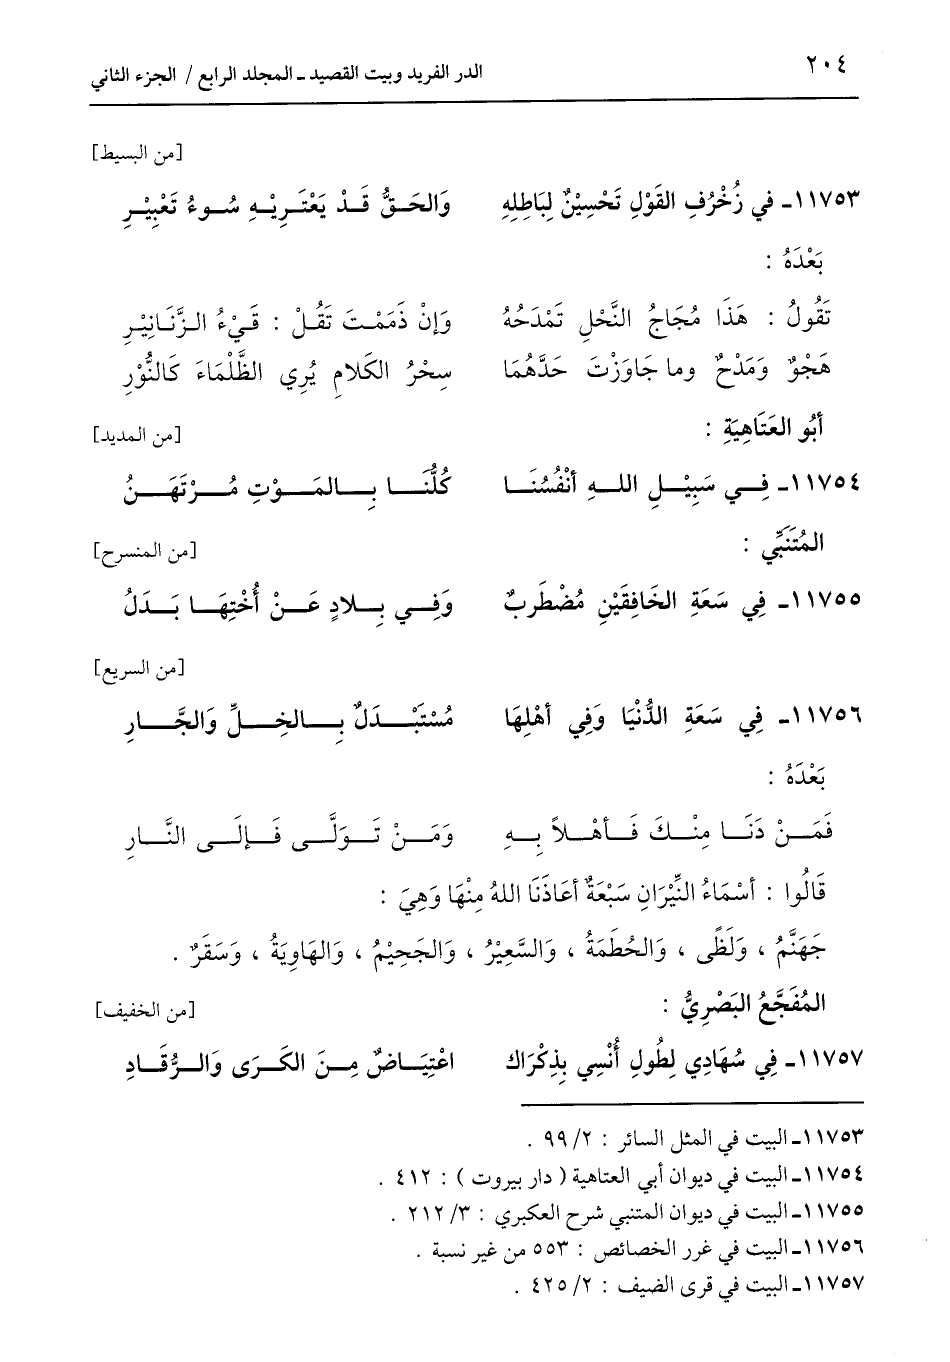 ٢٠٤ الدر الفريد وبيت القصيد ـ المجلد الرابع / الجزء الثاني
[من البسيط]
١١٧٥٣ـ في زُخْرُفِ القَوْلِ تَحْسِيْنٌ لِبَاطِلِهِ وَالحَـقُّ قَـدْ يَعْتَـرِيْـهِ سُـوءُ تَعْبِيْـرِ
بَعْدَهُ :
تَقُولُ : هَذَا مُجَاجُ النَّحْلِ تَمْدَحُهُ وَإنْ ذَمَمْـتَ تَقُـلْ : قَـيْءُ الـزَّنَـانِيْـرِ
هَجْوٌ وَمَدْحٌ وما جَاوَزْتَ حَدَّهُمَا سِحْرُ الكَلامِ يُرِي الظَّلْمَاءَ كَالنُّوْرِ
أبُو العَتَاهِيَةِ : [من المديد]
١١٧٥٤ـ فِـي سَبِيْـلِ اللهِ أنْفُسُنَـا كُلُّنَـا بِـالمَـوْتِ مُـرْتَهَـنُ
المُتَنَبِّي : [من المنسرح]
١١٧٥٥ـ فِي سَعَةِ الخَافِقَيْنِ مُضْطَرِبٌ وَفِـي بِـلادٍ عَـنْ أُخْتِهَـا بَـدَلُ
[من السريع]
١١٧٥٦ـ فِي سَعَةِ الدُّنْيَا وَفِي أهْلِهَا مُسْتَبْـدَلٌ بِـالخِـلِّ وَالجَّـارِ
بَعْدَهُ :
فَمَـنْ دَنَـا مِنْـكَ فَـأهْـلاً بِـهِ وَمَـنْ تَـوَلَّـى فَـإلَـى النَّـارِ
قَالُوا : أسْمَاءُ النِّيْرَانِ سَبْعَةٌ أعَاذَنَا اللهُ مِنْهَا وَهِيَ :
جَهَنَّمُ ، وَلَظًى ، وَالحُطَمَةُ ، وَالسَّعِيْرُ ، وَالجَحِيْمُ ، وَالهَاوِيَةُ ، وَسَقَرٌ .
المُفَجَّعُ البَصْرِيُّ : [من الخفيف]
١١٧٥٧ـ فِي سُهَادِي لِطُولِ أُنْسِي بِذِكْرَاك اعْتِيَـاضٌ مِـنَ الكَـرَى وَالـرُّقَـادِ
١١٧٥٣ـ البيت في المثل السائر : ٢/ ٩٩ .
١١٧٥٤ـ البيت في ديوان أبي العتاهية ( دار بيروت ) : ٤١٢ .
١١٧٥٥ـ البيت في ديوان المتنبي شرح العكبري : ٣/ ٢١٢ .
١١٧٥٦ـ البيت في غرر الخصائص : ٥٥٣ من غير نسبة .
١١٧٥٧ـ البيت في قرى الضيف : ٢/ ٤٢٥ .